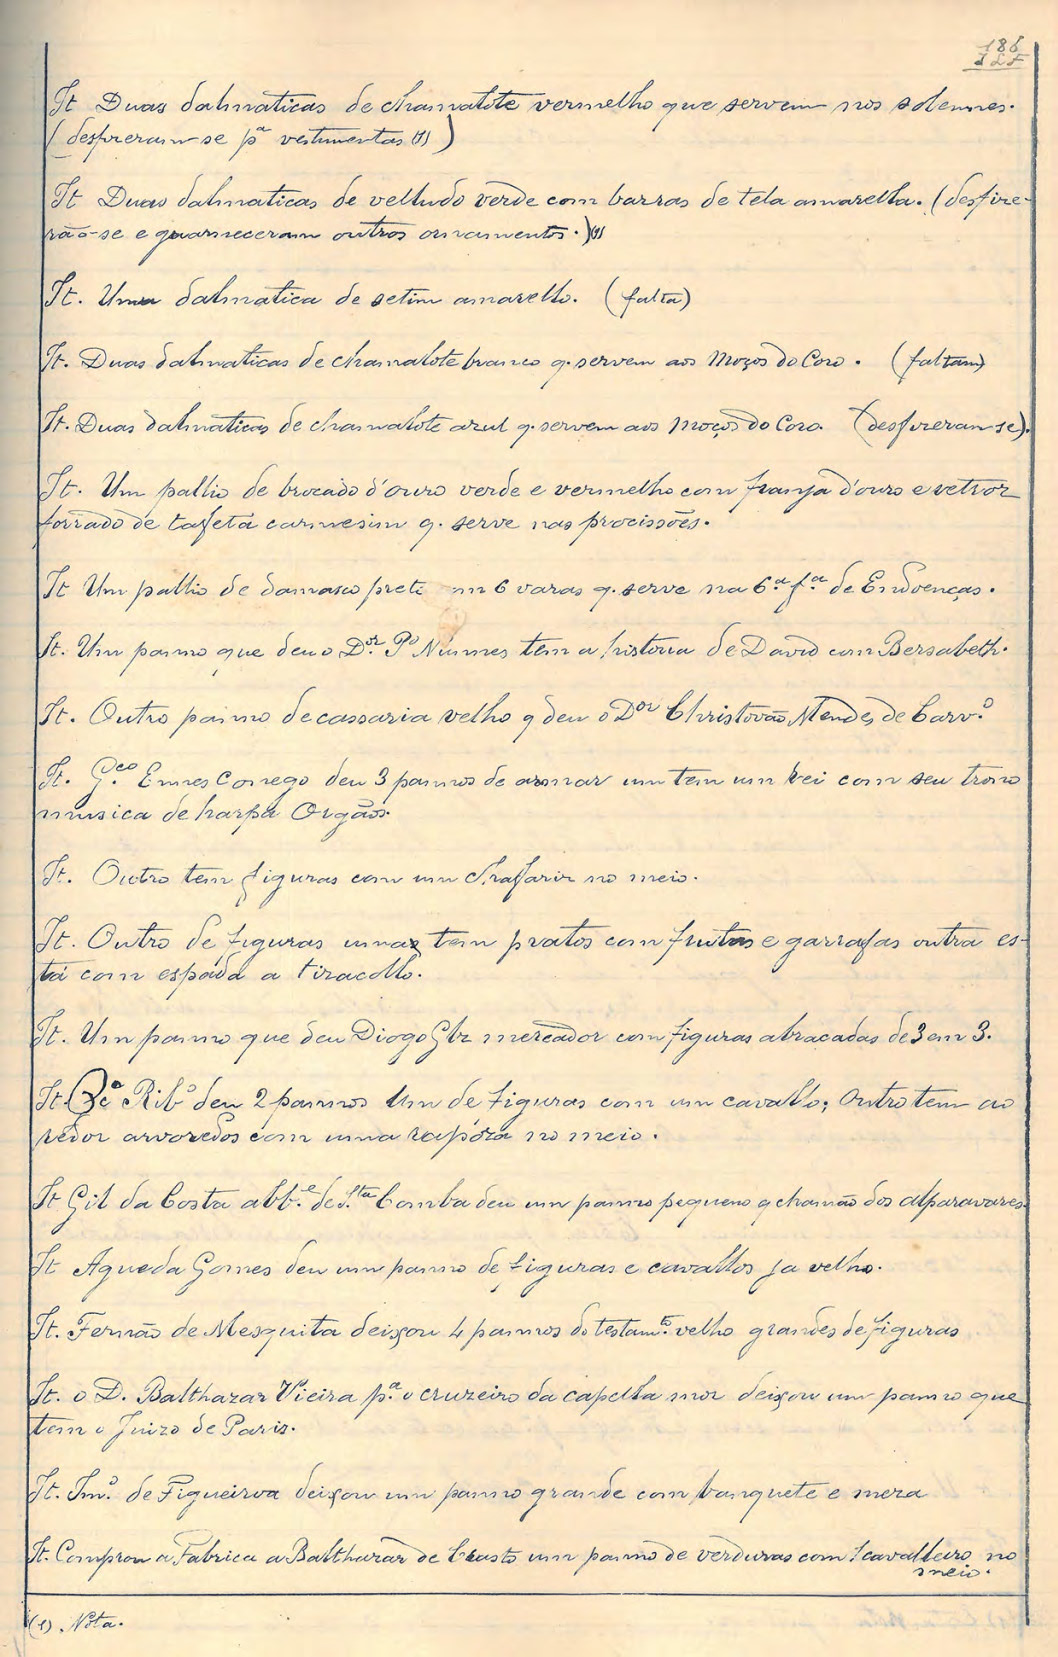 186
It Duas dalmaticas de chamalote vermelho que servem nos solemnes.
(desfizeram-se pª vestimentas (1))
It Duas dalmaticas de velludo verde com barras de tela amarella. (desfize-
rão-se e guarneceram outros ornamentos.)(1)
It. Uma dalmatica de setim amarello. (falta)
It. Duas dalmaticas de chamalote branco q. servem aos Moços do Coro. (faltam)
It. Duas dalmaticas de chamalote azul q. servem aos Moços do Coro. (desfizeram-se).
It. Um pallio de brocado d'ouro verde e vermelho com franja d'ouro e retroz
forrado de tafetá carmesim q. serve nas procissões.
It Um pallio de damasco preto em 6 varas q. serve na 6.ª f.ª de Endoenças.
It. Um panno que deu o D.or Pº Nunnes tem a historia de David com Bersabeth.
It. Outro panno de cassaria velho q deu o Dor Christovão Mendes de Carv.º
It. G.co Ennes Conego deu 3 pannos de armar um tem um Rei com seu trono
musica de harpa Orgãos.
It. Outro tem figuras com um chafariz no meio.
It. Outro de figuras umas tem pratos com frutas e garrafas outra es-
tá com espada a tiracollo.
It. Um panno que deu Diogo Glz mercador com figuras abracadas de 3 em 3.
It Ribº deu 2 pannos Um de figuras com um cavallo; Outro tem ao
redor arvoredos com uma rapôza no meio.
It Gil da Costa abb.e de S.ta Comba deu um panno pequeno q chamão dos alparavares.
It Agueda Gomes deu um panno de figuras e cavallos ja velho.
It. Fernão de Mesquita deixou 4 pannos do testam.to velho grandes de figuras
It. o D. Balthazar Vieira p.ª o cruzeiro da capella mor deixou um panno que
tem o Juizo de Paris.
It. Jm.º de Figueiroa deixou um panno grande com banquete e meza
It. Comprou a Fabrica a Balthazar de Crasto um panno de verduras com 1 cavalleiro no
meio.
(1) Nota.